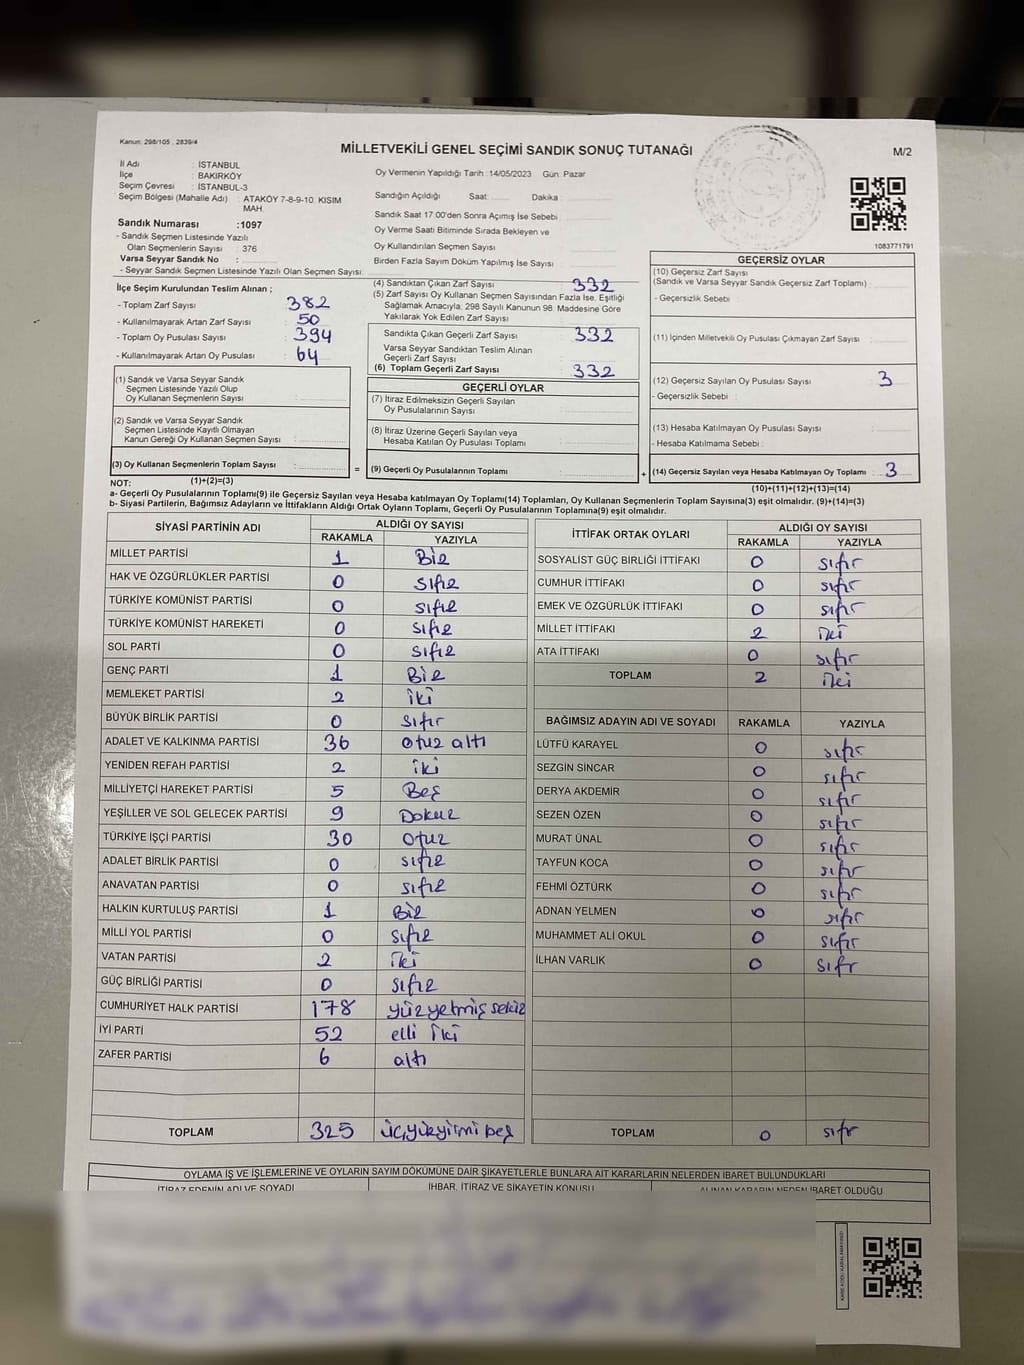 Kanun: 298/105 , 2839/4
MİLLETVEKİLİ GENEL SEÇİMİ SANDIK SONUÇ TUTANAĞI
M/2
İl Adı : İSTANBUL
İlçe : BAKIRKÖY
Seçim Çevresi : İSTANBUL-3
Seçim Bölgesi (Mahalle Adı) : ATAKÖY 7-8-9-10. KISIM
MAH.
Sandık Numarası :1097
- Sandık Seçmen Listesinde Yazılı
Olan Seçmenlerin Sayısı : 376
Varsa Seyyar Sandık No :
- Seyyar Sandık Seçmen Listesinde Yazılı Olan Seçmen Sayısı:
Oy Vermenin Yapıldığı Tarih :14/05/2023 Gün: Pazar
Sandığın Açıldığı Saat: Dakika :
Sandık Saat 17:00'den Sonra Açımış İse Sebebi :
Oy Verme Saati Bitiminde Sırada Bekleyen ve
Oy Kullandırılan Seçmen Sayısı :
Birden Fazla Sayım Döküm Yapılmış İse Sayısı :
1083771791
İlçe Seçim Kurulundan Teslim Alınan ;
- Toplam Zarf Sayısı : 382
- Kullanılmayarak Artan Zarf Sayısı : 50
- Toplam Oy Pusulası Sayısı : 394
- Kullanılmayarak Artan Oy Pusulası : 64
(1) Sandık ve Varsa Seyyar Sandık
Seçmen Listesinde Yazılı Olup
Oy Kullanan Seçmenlerin Sayısı :
(2) Sandık ve Varsa Seyyar Sandık
Seçmen Listesinde Kayıtlı Olmayan
Kanun Gereği Oy Kullanan Seçmen Sayısı :
(3) Oy Kullanan Seçmenlerin Toplam Sayısı :
(1)+(2)=(3)
(4) Sandıktan Çıkan Zarf Sayısı : 332
(5) Zarf Sayısı Oy Kullanan Seçmen Sayısından Fazla İse, Eşitliği
Sağlamak Amacıyla, 298 Sayılı Kanunun 98. Maddesine Göre
Yakılarak Yok Edilen Zarf Sayısı :
Sandıkta Çıkan Geçerli Zarf Sayısı : 332
Varsa Seyyar Sandıktan Teslim Alınan
Geçerli Zarf Sayısı :
(6) Toplam Geçerli Zarf Sayısı : 332
GEÇERLİ OYLAR
(7) İtiraz Edilmeksizin Geçerli Sayılan
Oy Pusulalarının Sayısı :
(8) İtiraz Üzerine Geçerli Sayılan veya
Hesaba Katılan Oy Pusulası Toplamı :
= (9) Geçerli Oy Pusulalarının Toplamı :
GEÇERSİZ OYLAR
(10) Geçersiz Zarf Sayısı
(Sandık ve Varsa Seyyar Sandık Geçersiz Zarf Toplamı) :
- Geçersizlik Sebebi :
(11) İçinden Milletvekili Oy Pusulası Çıkmayan Zarf Sayısı :
(12) Geçersiz Sayılan Oy Pusulası Sayısı : 3
- Geçersizlik Sebebi :
(13) Hesaba Katılmayan Oy Pusulası Sayısı :
- Hesaba Katılmama Sebebi :
+ (14) Geçersiz Sayılan veya Hesaba Katılmayan Oy Toplamı : 3
(10)+(11)+(12)+(13)=(14)
NOT:
a- Geçerli Oy Pusulalarının Toplamı(9) ile Geçersiz Sayılan veya Hesaba katılmayan Oy Toplamı(14) Toplamları, Oy Kullanan Seçmenlerin Toplam Sayısına(3) eşit olmalıdır. (9)+(14)=(3)
b- Siyasi Partilerin, Bağımsız Adayların ve İttifakların Aldığı Ortak Oyların Toplamı, Geçerli Oy Pusulalarının Toplamına(9) eşit olmalıdır.
SİYASİ PARTİNİN ADI ALDIĞI OY SAYISI
RAKAMLA YAZIYLA
MİLLET PARTİSİ 1 Bir
HAK VE ÖZGÜRLÜKLER PARTİSİ 0 sıfır
TÜRKİYE KOMÜNİST PARTİSİ 0 sıfır
TÜRKİYE KOMÜNİST HAREKETİ 0 sıfır
SOL PARTİ 0 sıfır
GENÇ PARTİ 1 Bir
MEMLEKET PARTİSİ 2 iki
BÜYÜK BİRLİK PARTİSİ 0 sıfır
ADALET VE KALKINMA PARTİSİ 36 otuz altı
YENİDEN REFAH PARTİSİ 2 iki
MİLLİYETÇİ HAREKET PARTİSİ 5 Beş
YEŞİLLER VE SOL GELECEK PARTİSİ 9 Dokuz
TÜRKİYE İŞÇİ PARTİSİ 30 otuz
ADALET BİRLİK PARTİSİ 0 sıfır
ANAVATAN PARTİSİ 0 sıfır
HALKIN KURTULUŞ PARTİSİ 1 Bir
MİLLİ YOL PARTİSİ 0 sıfır
VATAN PARTİSİ 2 iki
GÜÇ BİRLİĞİ PARTİSİ 0 sıfır
CUMHURİYET HALK PARTİSİ 178 yüzyetmiş sekiz
İYİ PARTİ 52 elli iki
ZAFER PARTİSİ 6 altı
TOPLAM 325 üçyüzyirmi beş
İTTİFAK ORTAK OYLARI ALDIĞI OY SAYISI
RAKAMLA YAZIYLA
SOSYALİST GÜÇ BİRLİĞİ İTTİFAKI 0 sıfır
CUMHUR İTTİFAKI 0 sıfır
EMEK VE ÖZGÜRLÜK İTTİFAKI 0 sıfır
MİLLET İTTİFAKI 2 iki
ATA İTTİFAKI 0 sıfır
TOPLAM 2 iki
BAĞIMSIZ ADAYIN ADI VE SOYADI RAKAMLA YAZIYLA
LÜTFÜ KARAYEL 0 sıfır
SEZGİN SİNCAR 0 sıfır
DERYA AKDEMİR 0 sıfır
SEZEN ÖZEN 0 sıfır
MURAT ÜNAL 0 sıfır
TAYFUN KOCA 0 sıfır
FEHMİ ÖZTÜRK 0 sıfır
ADNAN YELMEN 0 sıfır
MUHAMMET ALİ OKUL 0 sıfır
İLHAN VARLIK 0 sıfr
TOPLAM 0 sıfr
OYLAMA İŞ VE İŞLEMLERİNE VE OYLARIN SAYIM DÖKÜMÜNE DAİR ŞİKAYETLERLE BUNLARA AİT KARARLARIN NELERDEN İBARET BULUNDUKLARI
İTİRAZ EDENİN ADI VE SOYADI İHBAR, İTİRAZ VE ŞİKAYETİN KONUSU ALINAN KARARIN NEDEN İBARET OLDUĞU